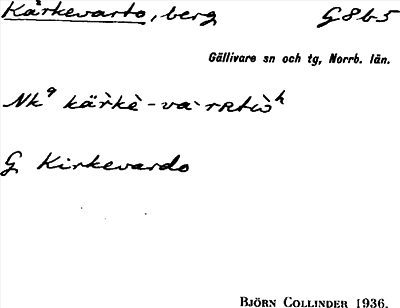 Kårkevarto, berg G8b5
Gällivare sn och tg, Norrb. län.
Nk⁹ kärkè-và rrtiòʰ
G Kirkevardo
BJÖRN COLLINDER 1936.